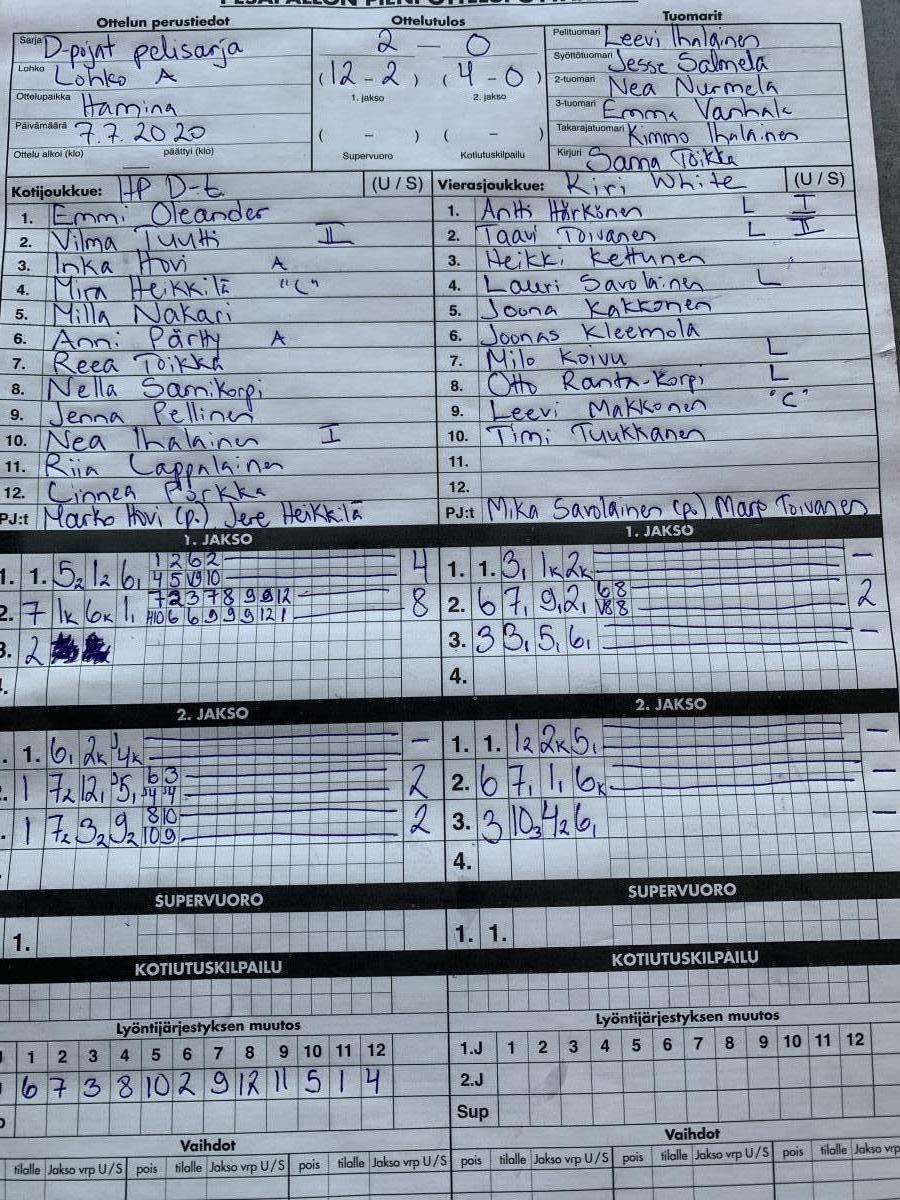 Ottelun perustiedot
Ottelutulos
Tuomarit
Sarja D-pojat pelisarja
Lohko Lohko A
Ottelupaikka Hamina
Päivämäärä 7.7.2020
Ottelu alkoi (klo) — päättyi (klo)
2 – 0
(12 - 2) (4 - 0)
1. jakso 2. jakso
( – ) ( – )
Supervuoro Kotiutuskilpailu
Pelituomari Leevi Ihalainen
Syöttötuomari Jesse Salmela
2-tuomari Nea Nurmela
3-tuomari Emma
Takarajatuomari Kimmo Ihalainen
Kirjuri Sanna Toikka
Kotijoukkue: HP D-t (U / S)
1. Emmi Oleander
2. Vilma Tuutti II
3. Inka Hovi A
4. Mira Heikkilä "C"
5. Milla Nakari
6. Anni Pärtty A
7. Reea Toikka
8. Nella Sarnikorpi
9. Jenna Pellinen
10. Nea Ihalainen I
11. Riia Lappalainen
12. Linnea Pörkka
PJ:t Marko Hovi (p.) Jere Heikkilä
Vierasjoukkue: Kiri White (U / S)
1. Antti Härkönen L I
2. Taavi Toivanen L II
3. Heikki Kettunen
4. Lauri Savolainen L
5. Joona Kakkonen
6. Joonas Kleemola
7. Milo Koivu L
8. Otto Ranta-Korpi L
9. Leevi Makkonen "C"
10. Timi Tuukkanen
11.
12.
PJ:t Mika Savolainen (p.) Toivanen
1. JAKSO
1. 1. 5₂ 1₂ 6₁ 1 2 6 2 4
4 5 V9 10
2. 7 1k 6k 1₁ 7 2 3 7 8 9 9 12 8
6 6 9 9 9 12 1
3. 2
1. JAKSO
1. 1. 3₁ 1k 2k –
2. 6 7₁ 9₁ 2₁ 6 8 2
V8 8
3. 3 3₁ 5₁ 6₁ –
4.
2. JAKSO
1. 6₁ 2k 4k –
1 7₂ 12₁ 5₁ 6 3 2
1 7₂ 3₂ 9₂ 8 10 2
10 9
2. JAKSO
1. 1. 1₂ 2k 5₁ –
2. 6 7₁ 1₁ 6k –
3. 3 10₃ 4₂ 6₁ –
4.
SUPERVUORO
1.
SUPERVUORO
1. 1.
KOTIUTUSKILPAILU
KOTIUTUSKILPAILU
Lyöntijärjestyksen muutos
1 2 3 4 5 6 7 8 9 10 11 12
6 7 3 8 10 2 9 12 11 5 1 4
Lyöntijärjestyksen muutos
1.J 1 2 3 4 5 6 7 8 9 10 11 12
2.J
Sup
Vaihdot
tilalle Jakso vrp U / S pois tilalle Jakso vrp U / S pois tilalle Jakso vrp U / S
Vaihdot
pois tilalle Jakso vrp U / S pois tilalle Jakso vrp U / S pois tilalle Jakso vrp